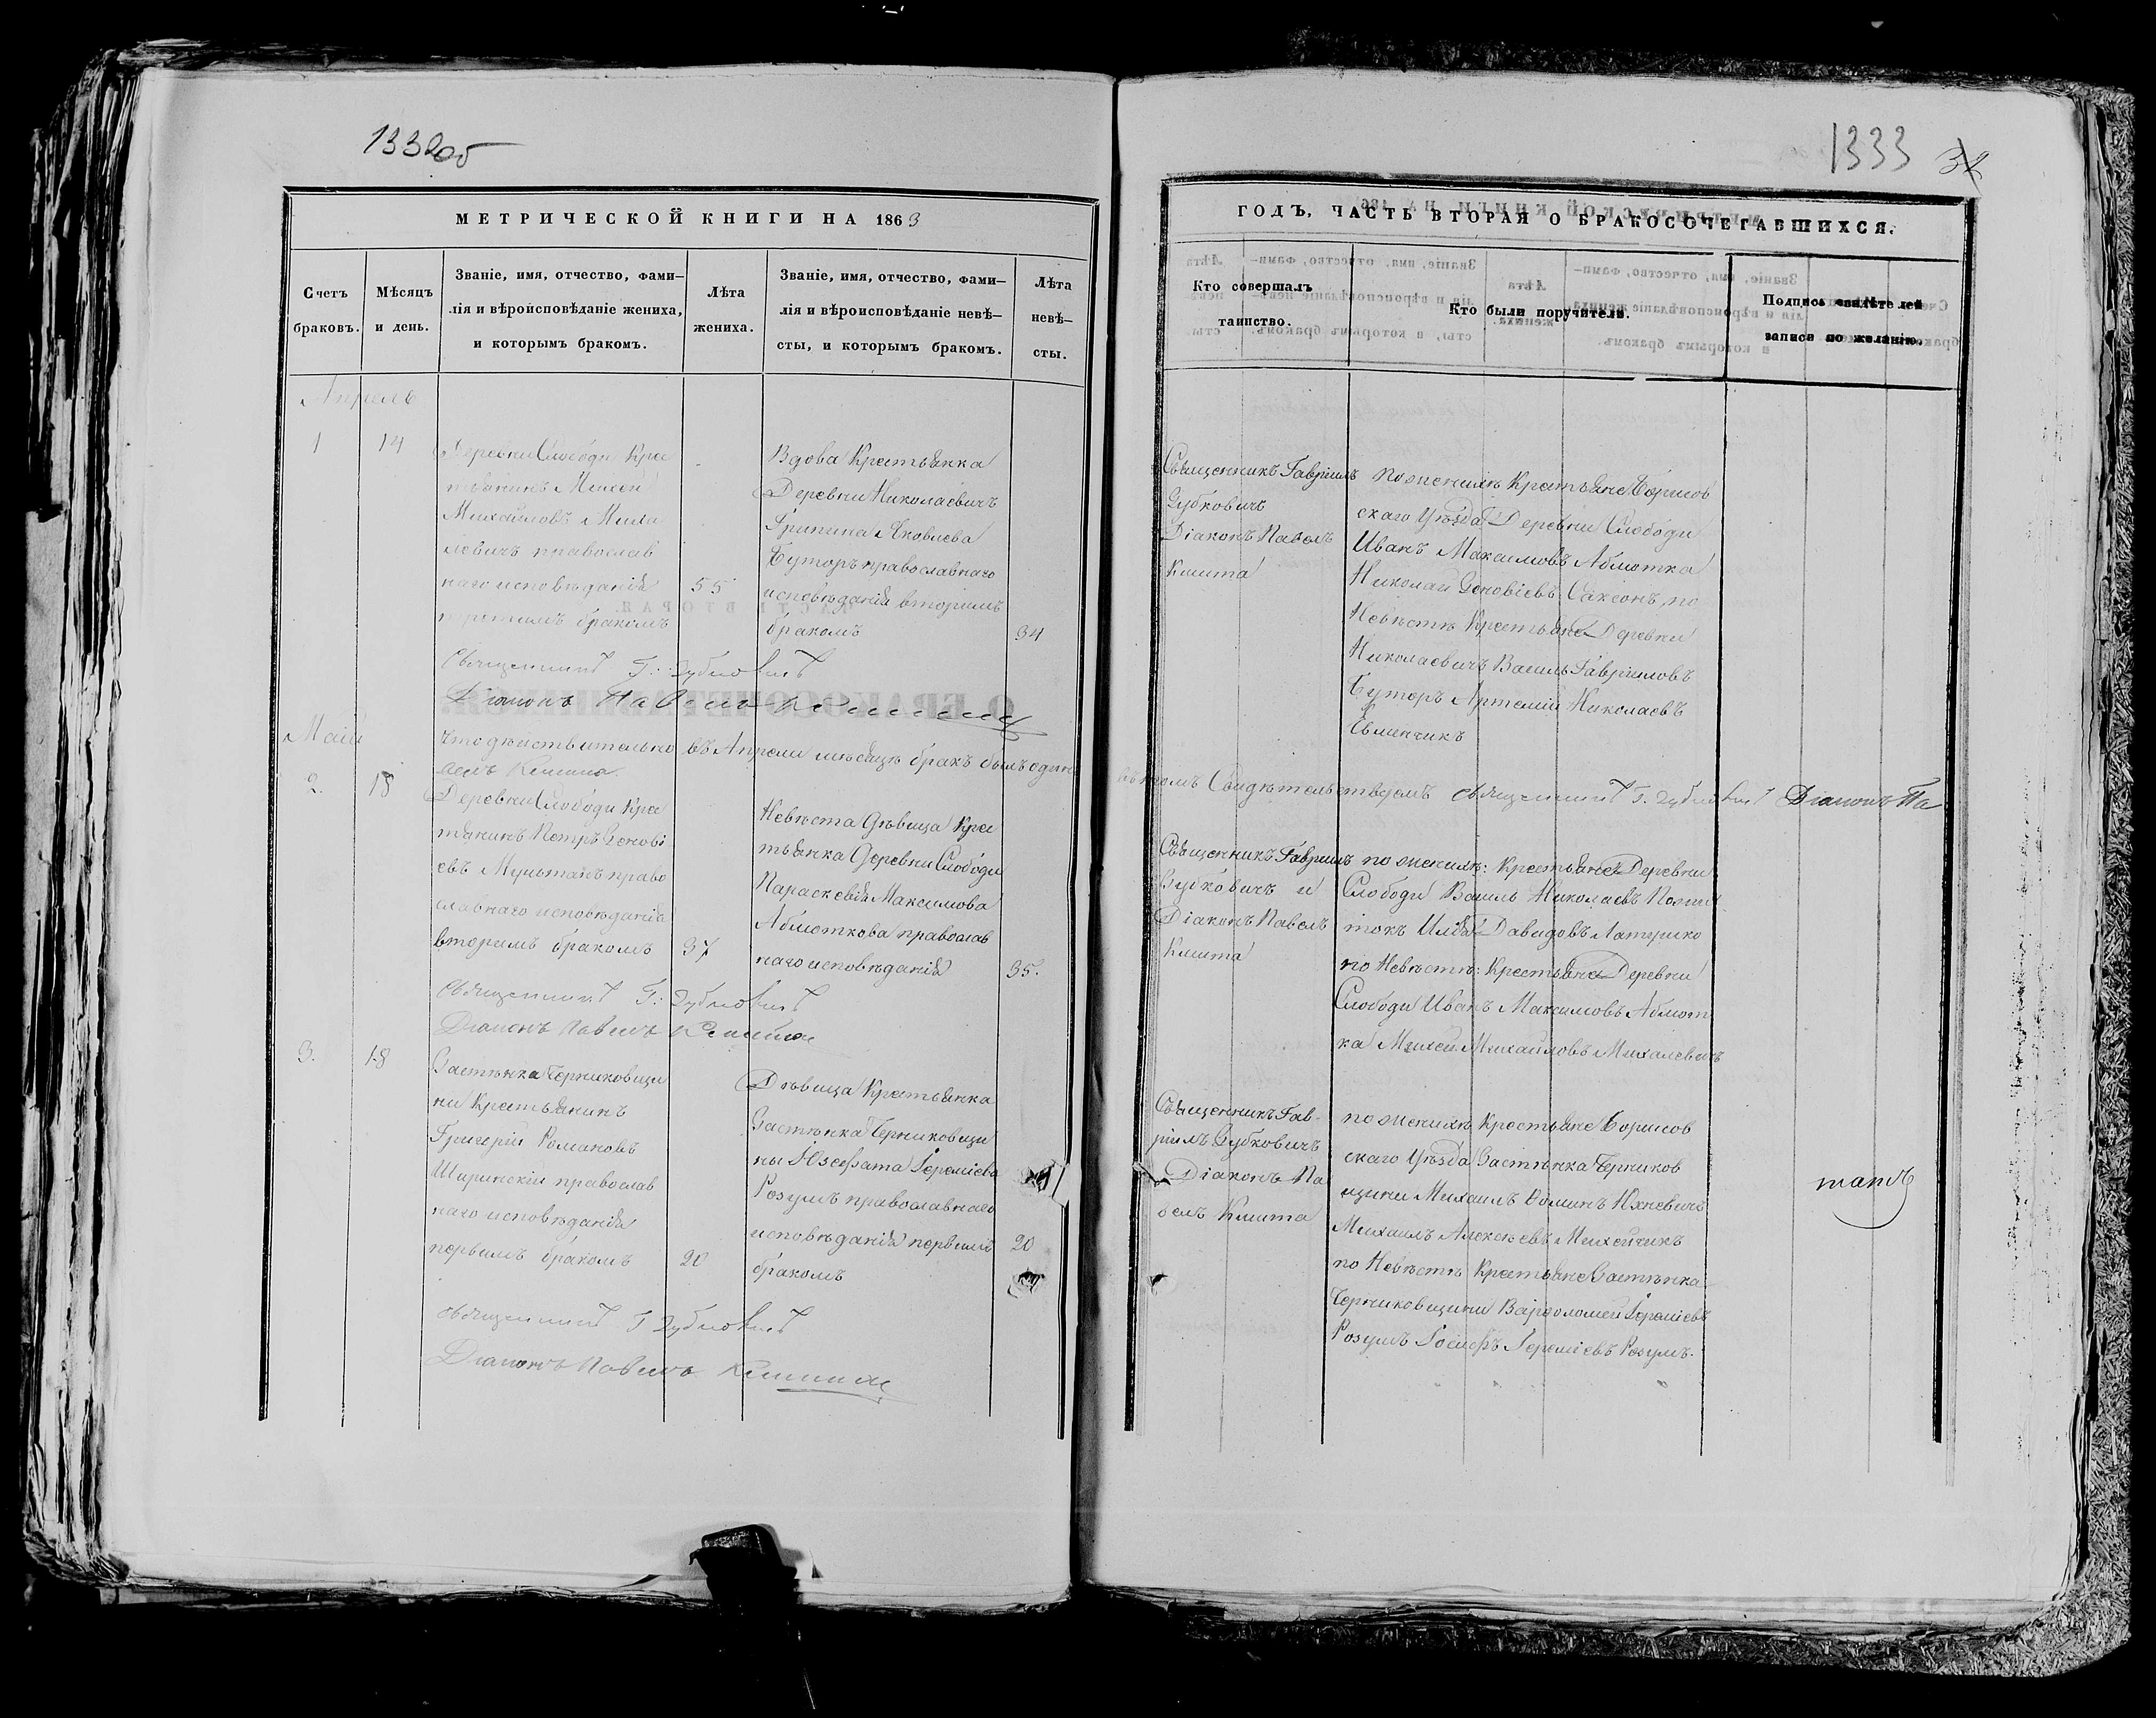 1332об
МЕТРИЧЕСКОЙ КНИГИ НА 1863
Счетъ браковъ.
Мѣсяцъ и день.
Званіе, имя, отчество, фами-
лія и вѣроисповѣданіе жениха,
и которымъ бракомъ.
Лѣта
жениха.
Званіе, имя, отчество, фами-
лія и вѣроисповѣданіе невѣ-
сты, и которымъ бракомъ.
Лѣта
невѣ-
сты.
Апрель
1
14
Деревни Слободи Крес
тьянинъ Михей
Михайловъ Миха
левичъ православ
наго исповѣданія
третимъ бракомъ
55
Вдова Крестьянка
Деревни Николаевичъ
Грипина Яковлева
Буторъ православнаго
исповѣданія вторимъ
бракомъ
34
Священникъ Г. Зубковичъ
Діаконъ Павелъ Кмита
что дѣиствительно въ Апрели мѣсяцѣ бракъ былъ одинъ
велъ Кмита
Маій
2.
18
Деревни Слободи Крес
тянинъ Петръ Зенові
евъ Мультанъ право
славнаго исповѣданія
вторимъ бракомъ
37
Невѣста Дѣвица Крес
тьянка Деревни Слободи
Параскевія Максимова
Аблюткова православ
наго исповѣданія
35.
Священникъ Г. Зубковичъ
Діаконъ Павелъ Кмита
3.
18
Застѣнка Черниковщи
ни Крестьянинъ
Григорій Романовъ
Ширинскій православ
наго исповѣданія
первимъ бракомъ
20
Дѣвица Крестьянка
Застѣнка Черниковщи
ны Юзефата Іереміева
Розумъ православнаго
исповѣданія первимъ
бракомъ
20
Священникъ Г Зубковичъ
Діаконъ Павелъ Кмита
1333
ГОДЪ, ЧАСТЬ ВТОРАЯ О БРАКОСОЧЕТАВШИХСЯ.
Кто совершалъ
таинство.
Кто были поручители.
Подпись свидѣтелей
записи по желанію.
Священникъ Гавріилъ
Зубковичъ
Діаконъ Павелъ
Кмита
по женихѣ Крестьяне Борисов
скаго Уѣзда Деревни Слободи
Иванъ Максимовъ Аблютка
Николай Зеновіевъ Саксонъ, по
Невѣстѣ Крестьяне Деревни
Николаевичъ Василь Гавріиловъ
Буторъ Артемій Николаевъ
Свидѣтельствуемъ Священникъ Г. Зубковичъ Діаконъ Па
Священникъ Гавріилъ
Зубковичъ и
Діаконъ Павелъ
Кмита
по женихѣ: Крестьяне Деревни
Слободи Василь Николаевъ
Илья Давидовъ Латушко
по Невѣстѣ: Крестьяне Деревни
Слободи Иванъ Максимовъ Аблют
ка Михей Михайловъ Михалевичъ
Священникъ Гав-
ріилъ Зубковичъ
Діаконъ Па
велъ Кмита
по женихѣ Крестьяне Борисов
скаго Уѣзда Застѣнка Черников
щини Михаилъ Фоминъ Яхневичъ
Михаилъ Алексѣевъ Михейчикъ
по Невѣстѣ Крестьяне Застѣнка
Черниковщини Варфоломей Іереміевъ
Розумъ Іосифъ Іереміевъ Розумъ.